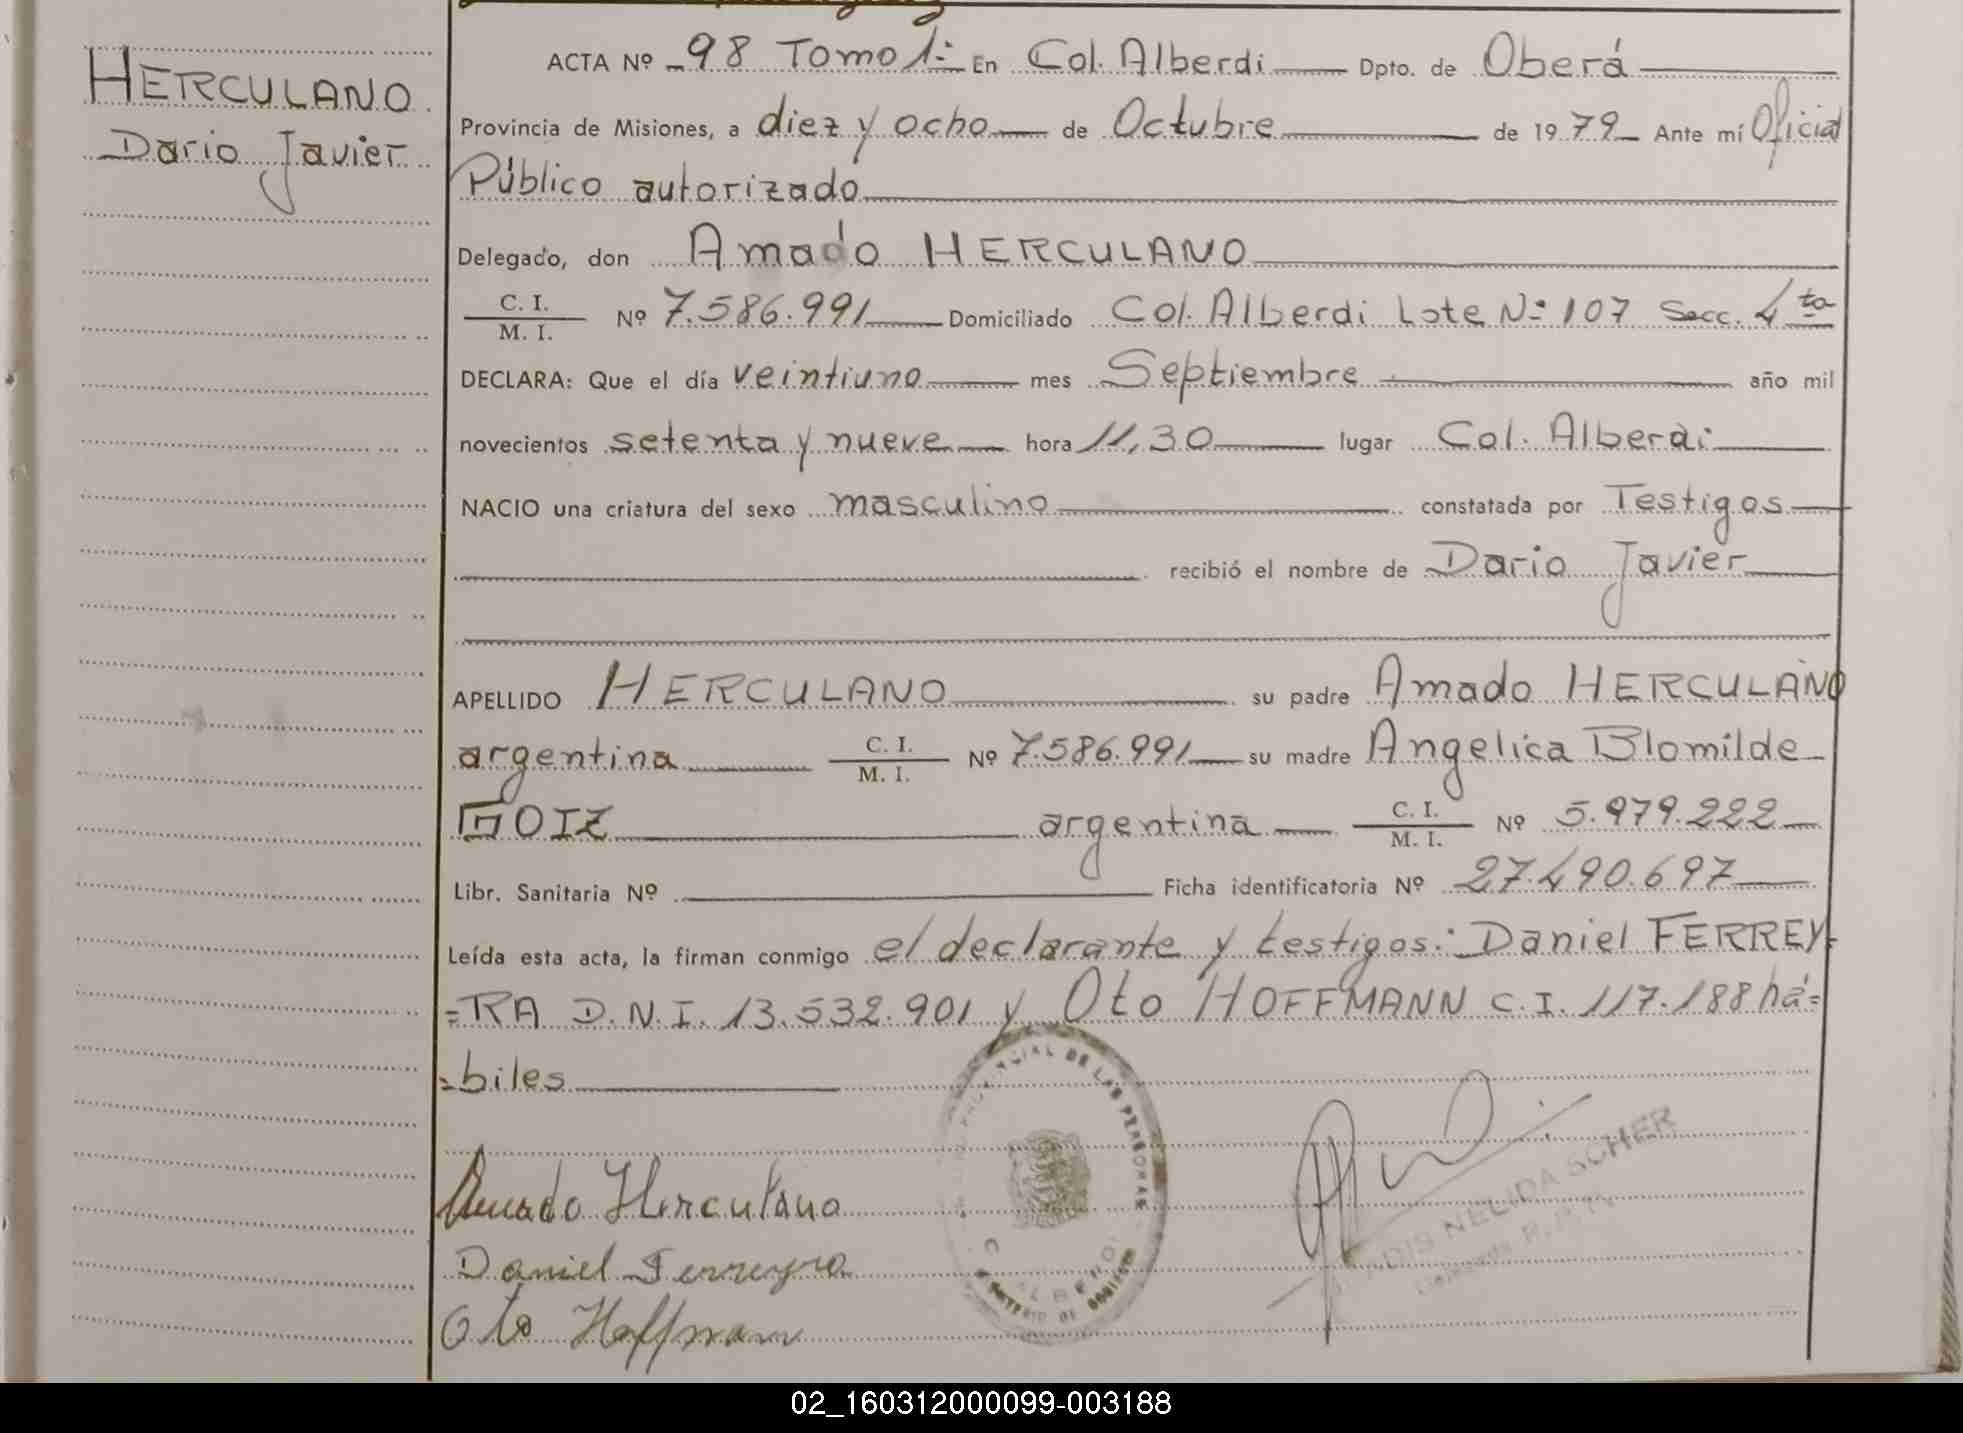 HERCULANO
Dario Javier
ACTA Nº 98 Tomo 1º En Col. Alberdi Dpto. de Oberá
Provincia de Misiones, a diez y ocho de Octubre de 1979 Ante mí Oficial
Público autorizado
Delegado, don Amado HERCULANO
C. I.
M. I. Nº 7.586.991 Domiciliado Col. Alberdi Lote Nº 107 Secc. 4ta
DECLARA: Que el día veintiuno mes Septiembre año mil
novecientos setenta y nueve hora 11,30 lugar Col. Alberdi
NACIO una criatura del sexo masculino constatada por Testigos
recibió el nombre de Dario Javier
APELLIDO HERCULANO su padre Amado HERCULANO
argentina C. I. M. I. Nº 7.586.991 su madre Angelica Blomilde
GOTZ argentina C. I. M. I. Nº 5.979.222
Libr. Sanitaria Nº Ficha identificatoria Nº 27.490.697
Leída esta acta, la firman conmigo el declarante y testigos: Daniel FERREY-
=RA D.N.I. 13.532.901 y Oto HOFFMANN C.I. 117.188 há=
=biles
Amado Herculano
Daniel Ferreyra
Oto Hoffmann
DE LAS PERSONAS
NELIDA SCHER
02_160312000099-003188